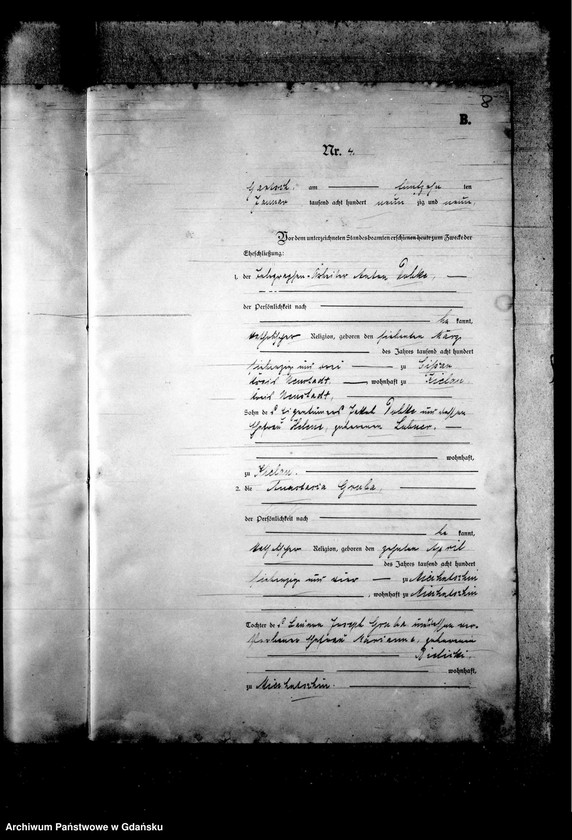 8
B.
Nr. 4.
am fünfzehn ten
Januar tausend acht hundert neun zig und neun.
Vor dem unterzeichneten Standesbeamten erschienen heute zum Zwecke der
Eheschließung:
1. der Telegraphen-Arbeiter Anton
der Persönlichkeit nach
be kannt,
katholischer Religion, geboren den siebenten März
des Jahres tausend acht hundert
siebenzig und drei zu
Kreis Neustadt wohnhaft zu Kielau
Kreis Neustadt,
Sohn des Eigenthümers Jakob und dessen
Ehefrau Helene, geborenen
wohnhaft,
zu Kielau.
2. die Anastasia Gruba,
der Persönlichkeit nach
be kannt,
katholischer Religion, geboren den zehnten April
des Jahres tausend acht hundert
siebenzig und vier zu Miechutschin
, wohnhaft zu Miechutschin
Tochter des Bauern Joseph Gruba und dessen ver-
storbenen Ehefrau Marianna, geborenen
wohnhaft,
zu Miechutschin.
Archiwum Państwowe w Gdańsku